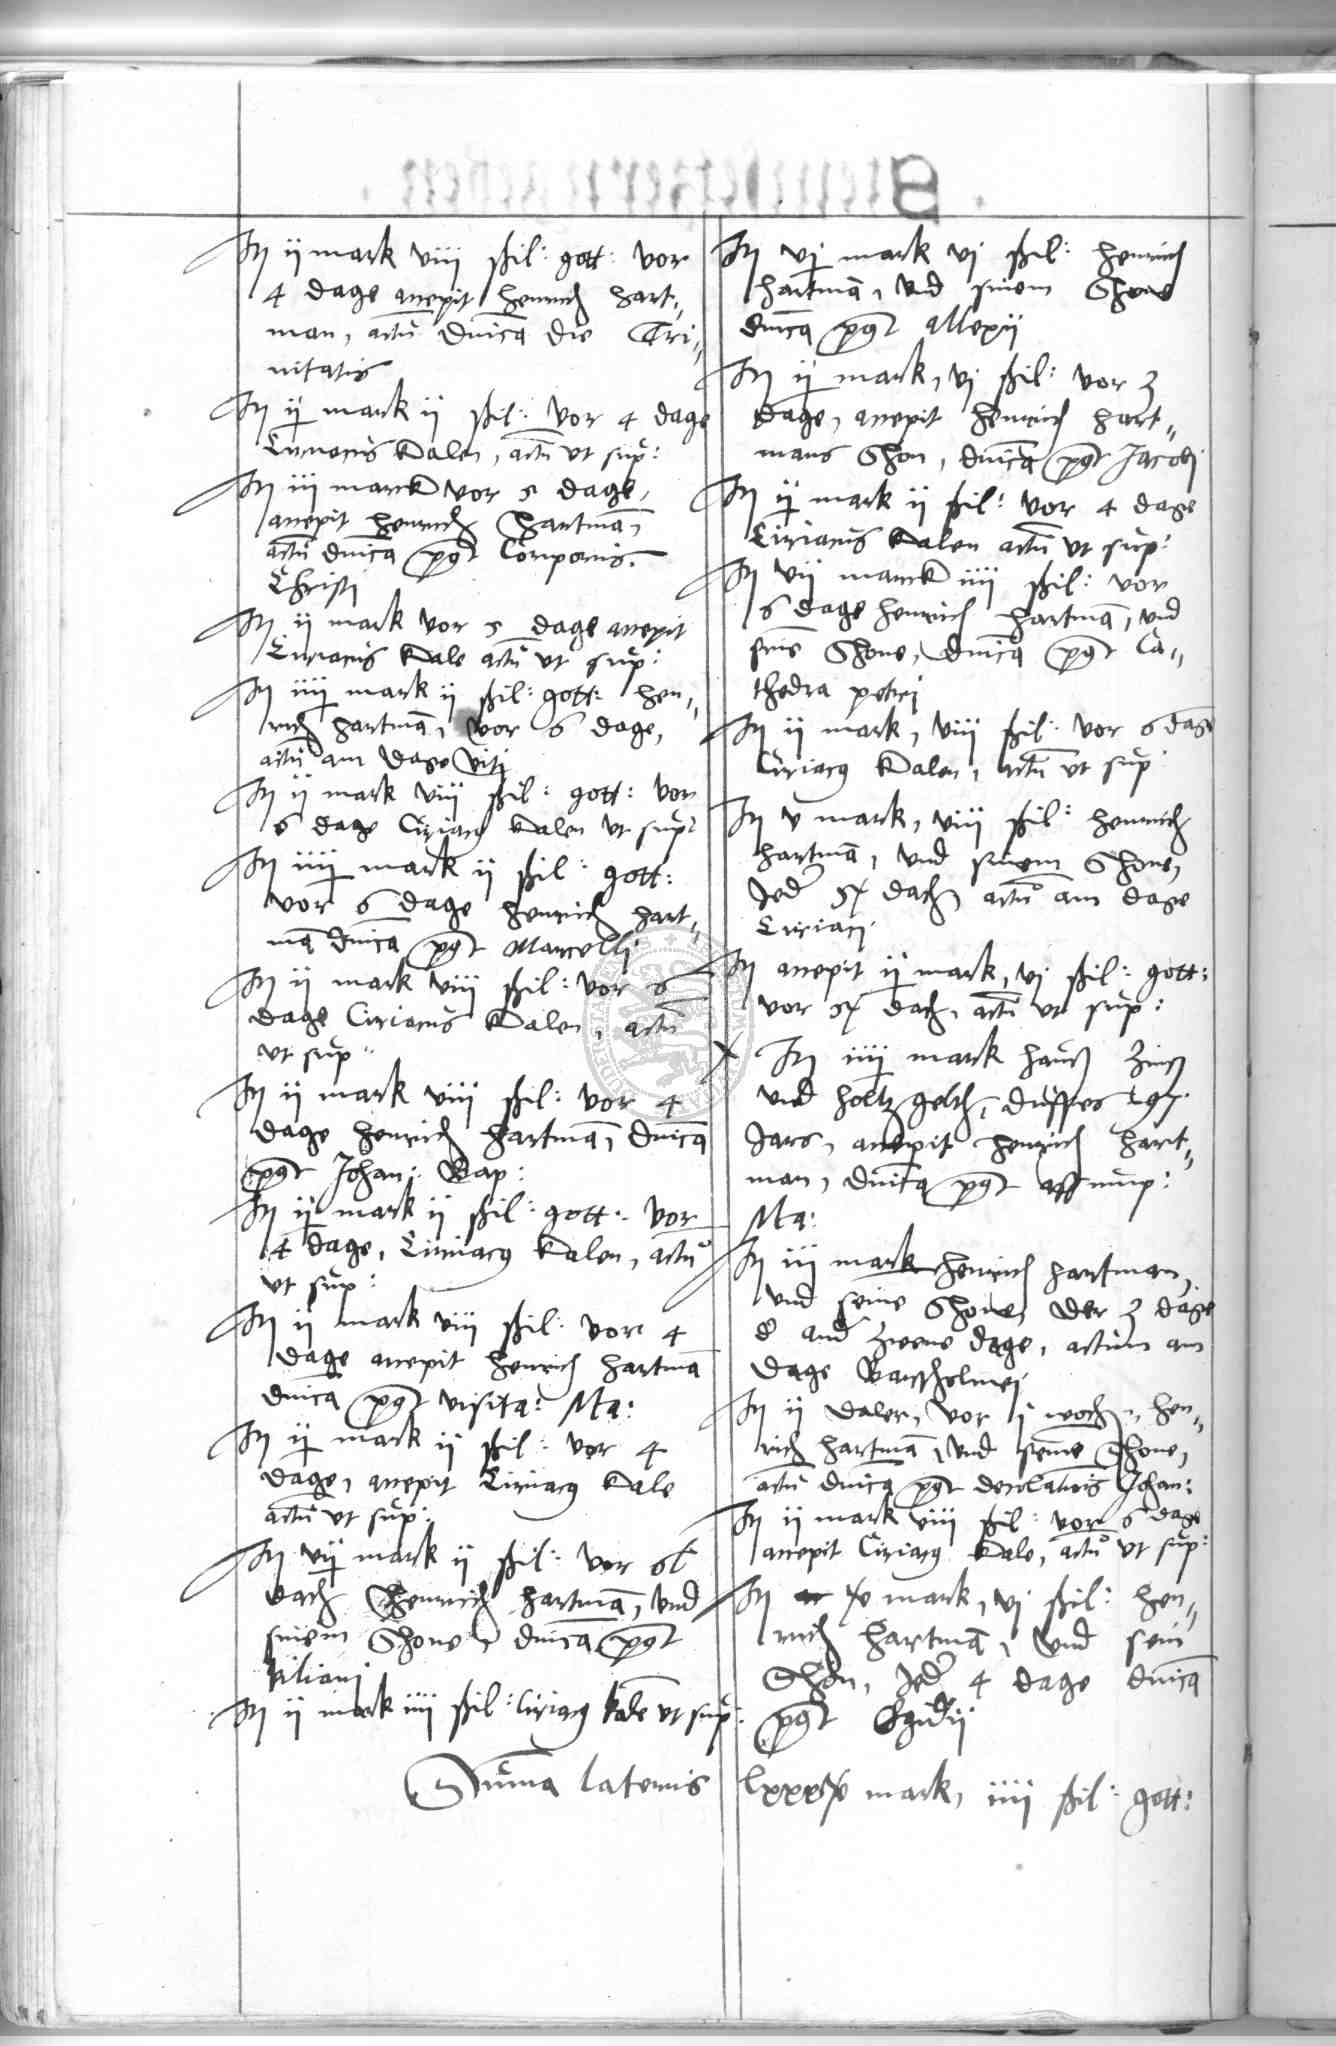 It ij mark viij ßil: gott: vor
4 dage accepit Henrich Hart„
man, actū dnica die Tri„
nitatis
It ij mark ij ßil: vor 4 dage
Ciriacus Kalen, actū ut sup:
It iij marck vor 5 dage,
accepit Henrich Hartmā,
actū dnica post Corporis
Christi
It ij mark vor 5 dage accepit
Ciriacus Kale actū ut sup:
It iiij mark ij ßil: gott: Hen„
rich Hartmā, vor 6 dage,
actū am dage Viti
It ij mark viij ßil: gott: vor
6 dage Ciriacq Kalen ut sup:
It iiij mark ij ßil: gott:
vor 6 dage Henrich Hart„
mā dnica post Marcelli
It ij mark viij ßil: vor 6
dage Ciriacus Kalen, actū
ut sup:
It ij mark viij ßil: vor 4
dage Henrich Hartmā, dnica
post Johan: Bap:
It ij mark ij ßil: gott: vor
4 dage, Ciriacq Kalen, actū
ut sup:
It ij mark viij ßil: vor 4
dage accepit Henrich Hartmā
dnica post visita: Ma:
It ij mark ij ßil: vor 4
dage, accepit Ciriacq Kale
actū ut sup:
It vij mark ij ßil: vor
dach Henrich Hartmā, vnd
sinem Shone, dnica post
Kiliani
It ij mark iiij ßil: Ciriacq Kalē ut sup:
It vj mark vj ßil: Henrich
Hartmā, vnd sinem Shone
dnica post Allexij
It ij mark, vj ßil: vor 3
dage, accepit Henrich Hart„
mans Shon, dnica post Jacobi
It ij mark ij ßil: vor 4 dage
Ciriacus Kalen actū ut sup:
It vij marck iiij ßil: vor
6 dage Henrich Hartmā, vnd
sinē Shone, dnica post Ca„
thedra petri
It ij mark, viij ßil: vor 6 dage
Ciriacq Kalen, actū ut sup:
It v mark, viij ßil: Henrich
Hartmā, vnd sinem Shone,
Jeder dach actū am dage
Ciriaci
It accepit ij mark, vj ßil: gott:
vor dach, actū ut sup:
It iiij mark hauß Zinß
vnd holtz gelth,
Jars, accepit Henrich Hart„
man, dnica post assump:
Ma:
It iij mark Henrich Hartman,
vnd seine Shone, der 3 dage
d and zweene dage, actum am
dage Bartholmei
It ij daler, vor j woch, Hen„
rich Hartmā, vnd seine Shone,
actū dnica post decolatiōis Johan:
It ij mark viij ßil: vor 6 dage
accepit Ciriacq Kale, actū ut sup:
It mark, vj ßil: Hen„
rich Hartmā, vnd sein
Shon, Jeder 4 dage dnica
post Egidij
Suma lateris mark, iiij ßil: gott: